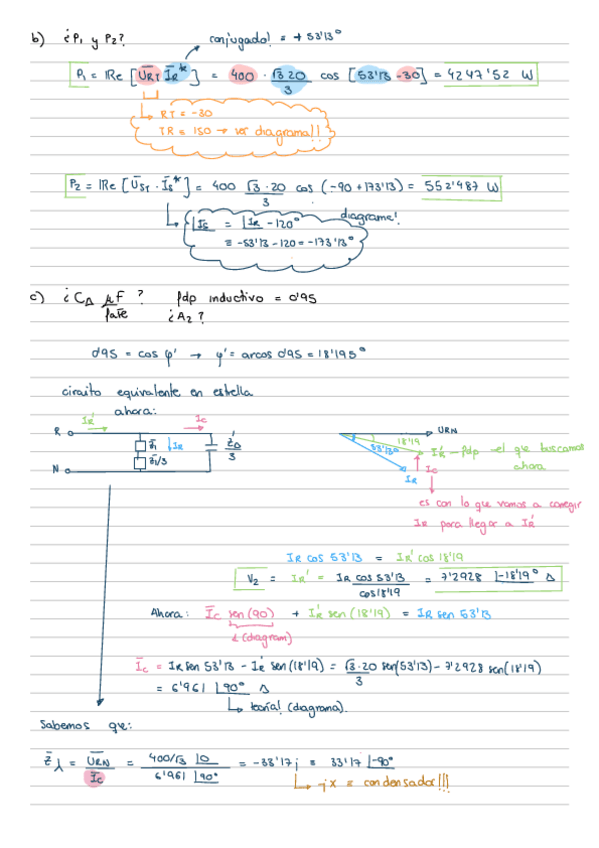 b) ¿P1 y P2?
conjugado! = + 53'13°
P1 = IRe [ŪRT ĪR*] = 400 · √3·20/3 cos [53'13 -30] = 4247'52 W
RT = -30
TR = 150 → ver diagrama!!
P2 = IRe [ŪST · ĪS*] = 400 √3·20/3 cos (-90 + 173'13) = 552'487 W
diagrama!
|IS = |IR -120°
= -53'13 - 120 = -173'13°
c) ¿CΔ μF/fase ? fdp inductivo = 0'95
¿A2?
0'95 = cos φ' → φ' = arcos 0'95 = 18'195°
circuito equivalente en estrella
ahora:
IR' Ic
R Z̄1 ↓IR Z̄Δ/3
N Z̄1/3
URN
18'19
53'130
IR' - fdp el que buscamos
ahora
Ic
IR
es con lo que vamos a corregir
IR para llegar a IR'
IR cos 53'13 = IR' cos 18'19
V2 = IR' = IR cos 53'13/cos 18'19 = 7'2928 |-18'19° A
Ahora: Īc sen(90) + IR' sen (18'19) = IR sen 53'13
(diagram)
Īc = IR sen 53'13 - IR' sen(18'19) = √3·20/3 sen(53'13) - 7'2928 sen(18'19)
= 6'961 |90° A
teoría! (diagrama).
Sabemos que:
Z̄⅄ = ŪRN/Īc = 400/√3 |0 / 6'961 |90° = -33'17 j = 33'17 |-90°
-jx = condensador!!!